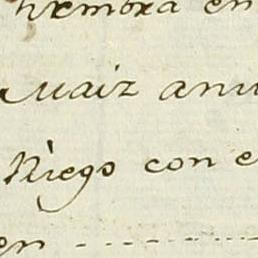 hembra en
Maiz anu
Riego con e
en